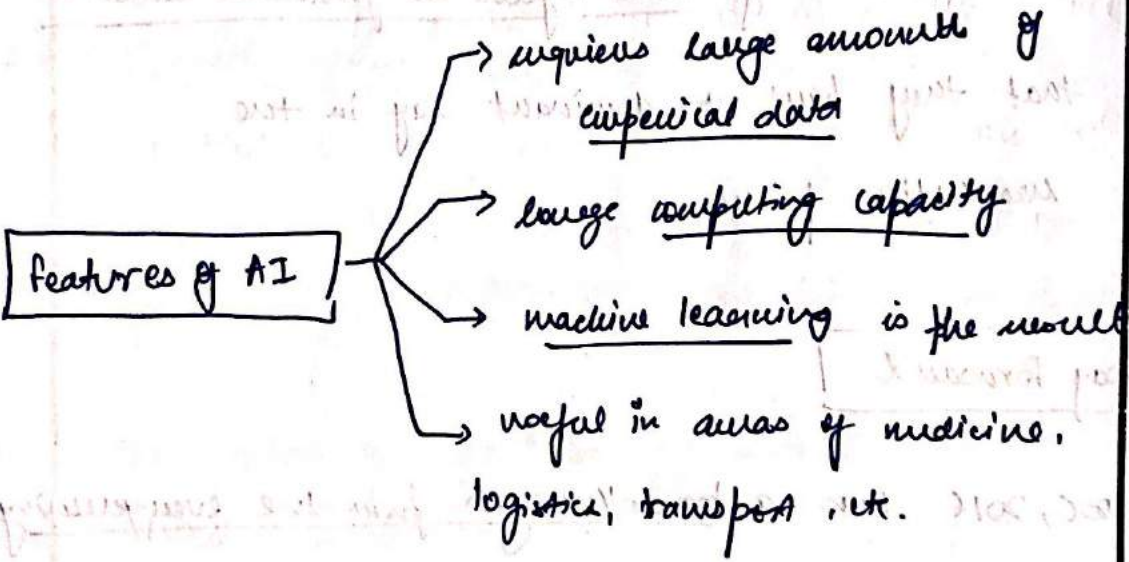 requires large amounts of
empirical data
large computing capacity
features of AI
machine learning is the result
useful in areas of medicine,
logistics, transport, etc.